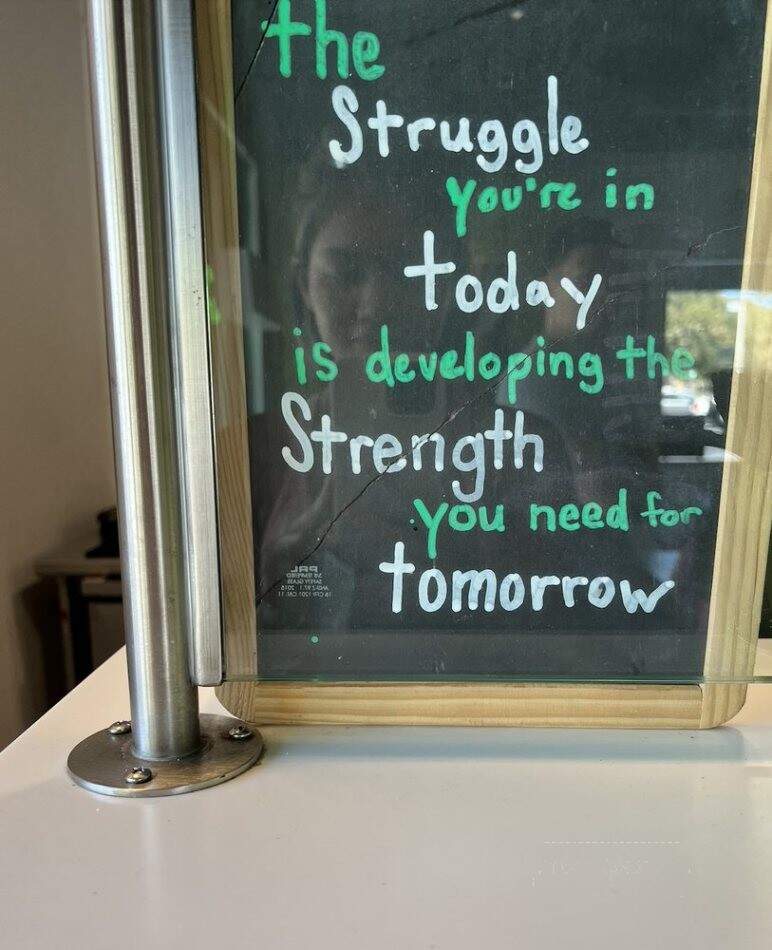 the
Struggle
you're in
today
is developing the
Strength
you need for
tomorrow